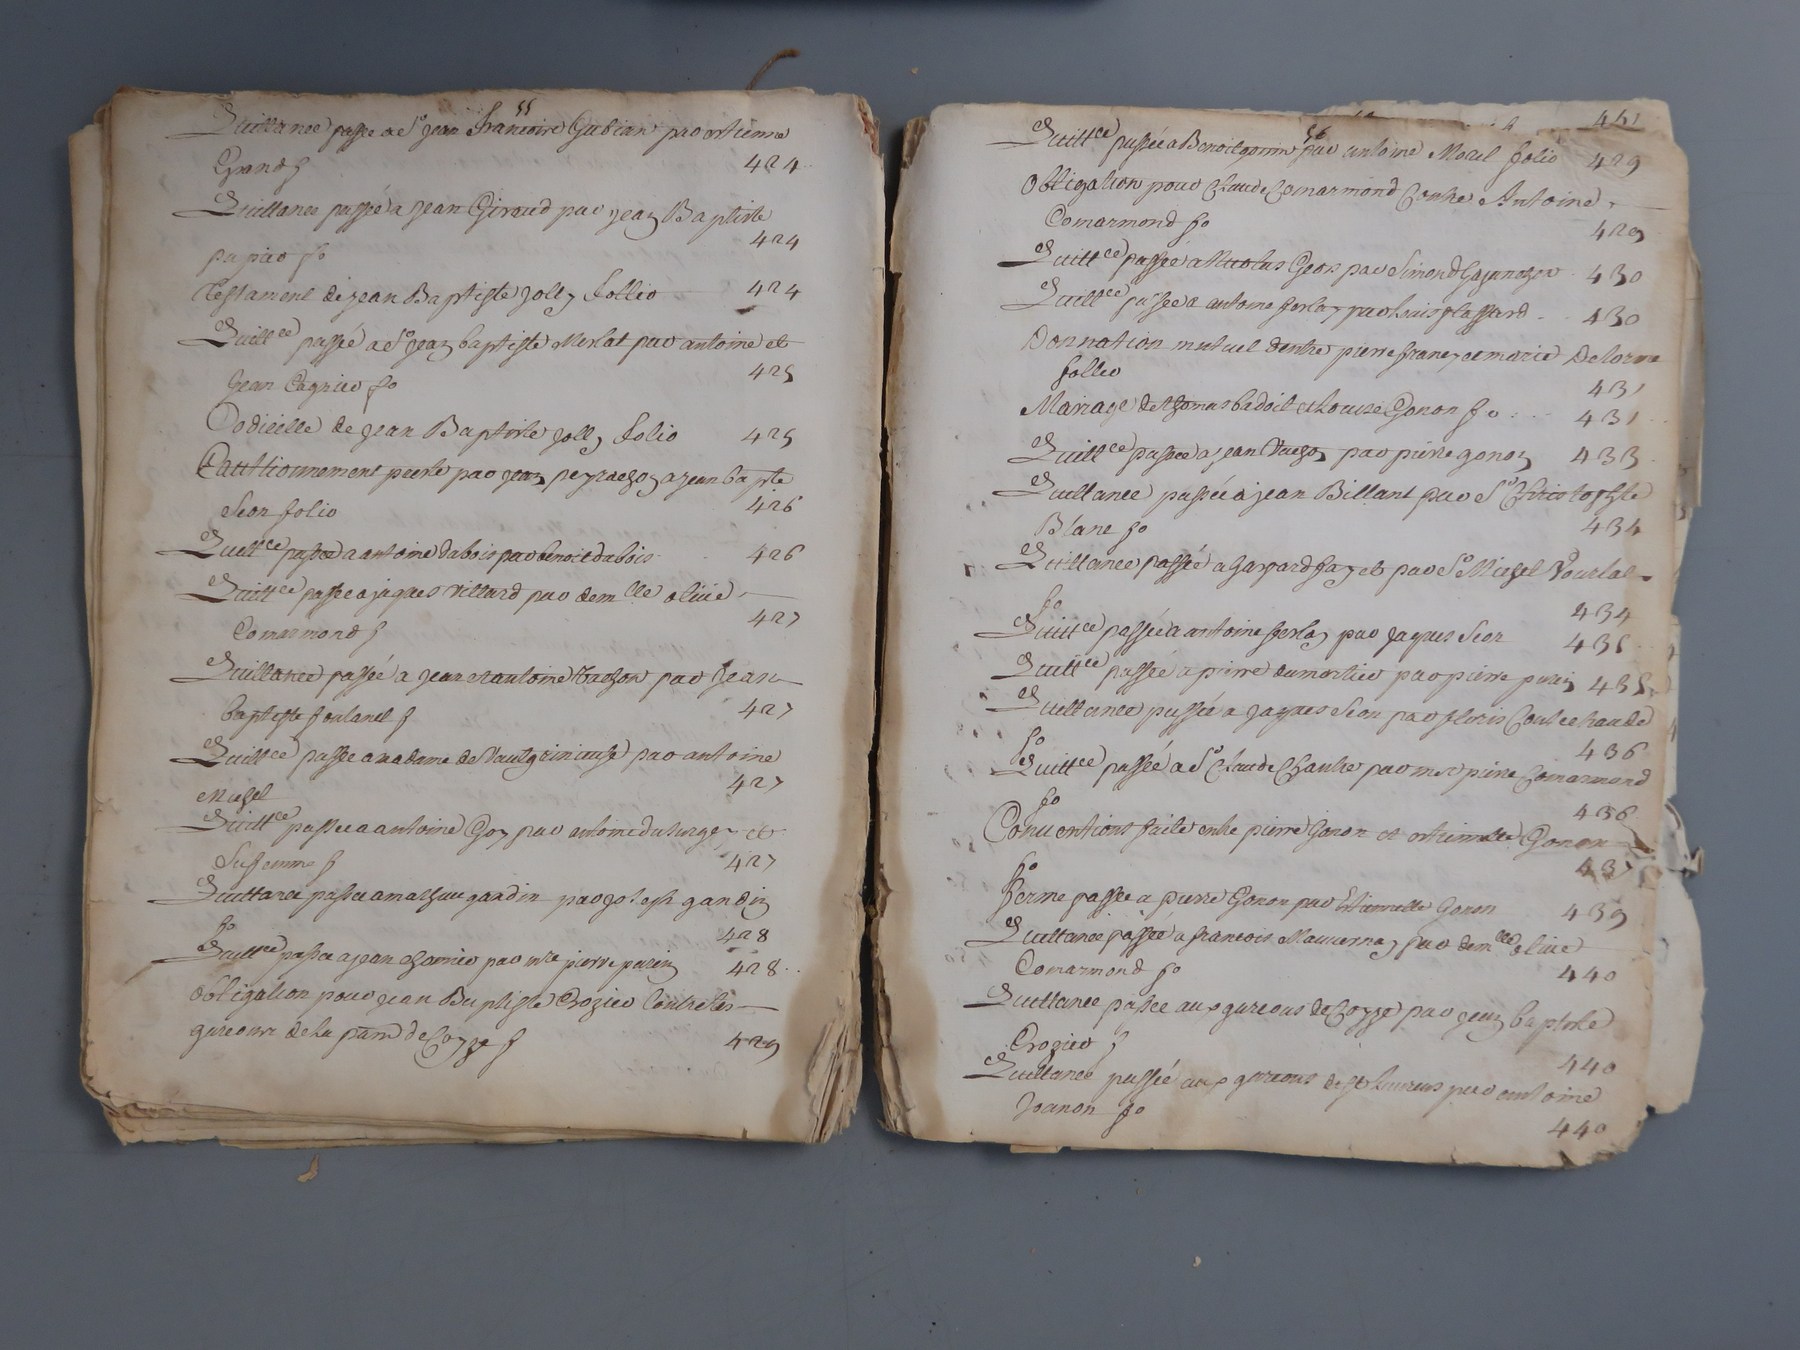 55
Quittance passée a Sr Jean Francois Gubian par estienne
Grand f 424
Quittance passée a Jean Giraud par Jean Baptiste
papier fo 424
Testament de Jean Baptiste Jolly follio 424
Quittce passé a Sr Jean baptiste Merlat par antoine et
Jean fo 425
Codicille de Jean Baptiste Jolly folio 425
Cauttionnement par Jean a Jean bapte
Seon folio 426
Quittce passée a antoine dubois par benoit dubois 426
Quittce passée a jaques Villard par demlle olive
Comarmond f 427
Quittance passée a Jean et antoine par Jean
baptiste foulanel f 427
Quittce passée a madame de par antoine
427
Quittce passée a antoine Goy par antoine et
sa femme f 427
Quittance passée a gandin par joseph gandin
fo 428
Quittce passée a jean par mre pierre 428
obligation pour Jean Baptiste Crozier Contre les
garcons de la parr de Coyze f 429
56
441
Quittce passée a Benoit gonin par antoine Morel folio 429
Obligation pour Claude Comarmond Contre Antoine
Comarmond fo 429
Quittce passée a Nicolas Geos par Simond 430
Quittce passée a antoine ferlay par Louis plassard 430
Donnation mutuel dentre pierre francy et marie Delorme
follio 431
Mariage de thomas badoit et Louise Gonon fo 431
Quittce passée a jean par pierre gonon 433
Quittance passée a jean Billant par Sr Christophle
Blanc fo 434
Quittance passée a Gaspard fayet par Sr Michel Vourlat
fo 434
Quittce passée a antoine ferlay par Jaques Seon 435
Quittce passée a pierre dumortier par pierre 435
Quittance passée a jaques Seon par floris Couchaude
fo 436
Quittce passée a Sr Claude Chantre par mre pierre Comarmond
fo 436
Conventions faite entre pierre Gonon et estiennette Gonon
fo 437
Ferme passée a pierre Gonon par Estiennette Gonon 439
Quittance passée a francois par demlle olive
Comarmond fo 440
Quittance passée aux garcons de Coyze par Jean baptiste
Crozier f 440
Quittance passée aux garcons de st Laurens par antoine
Joanon fo 440